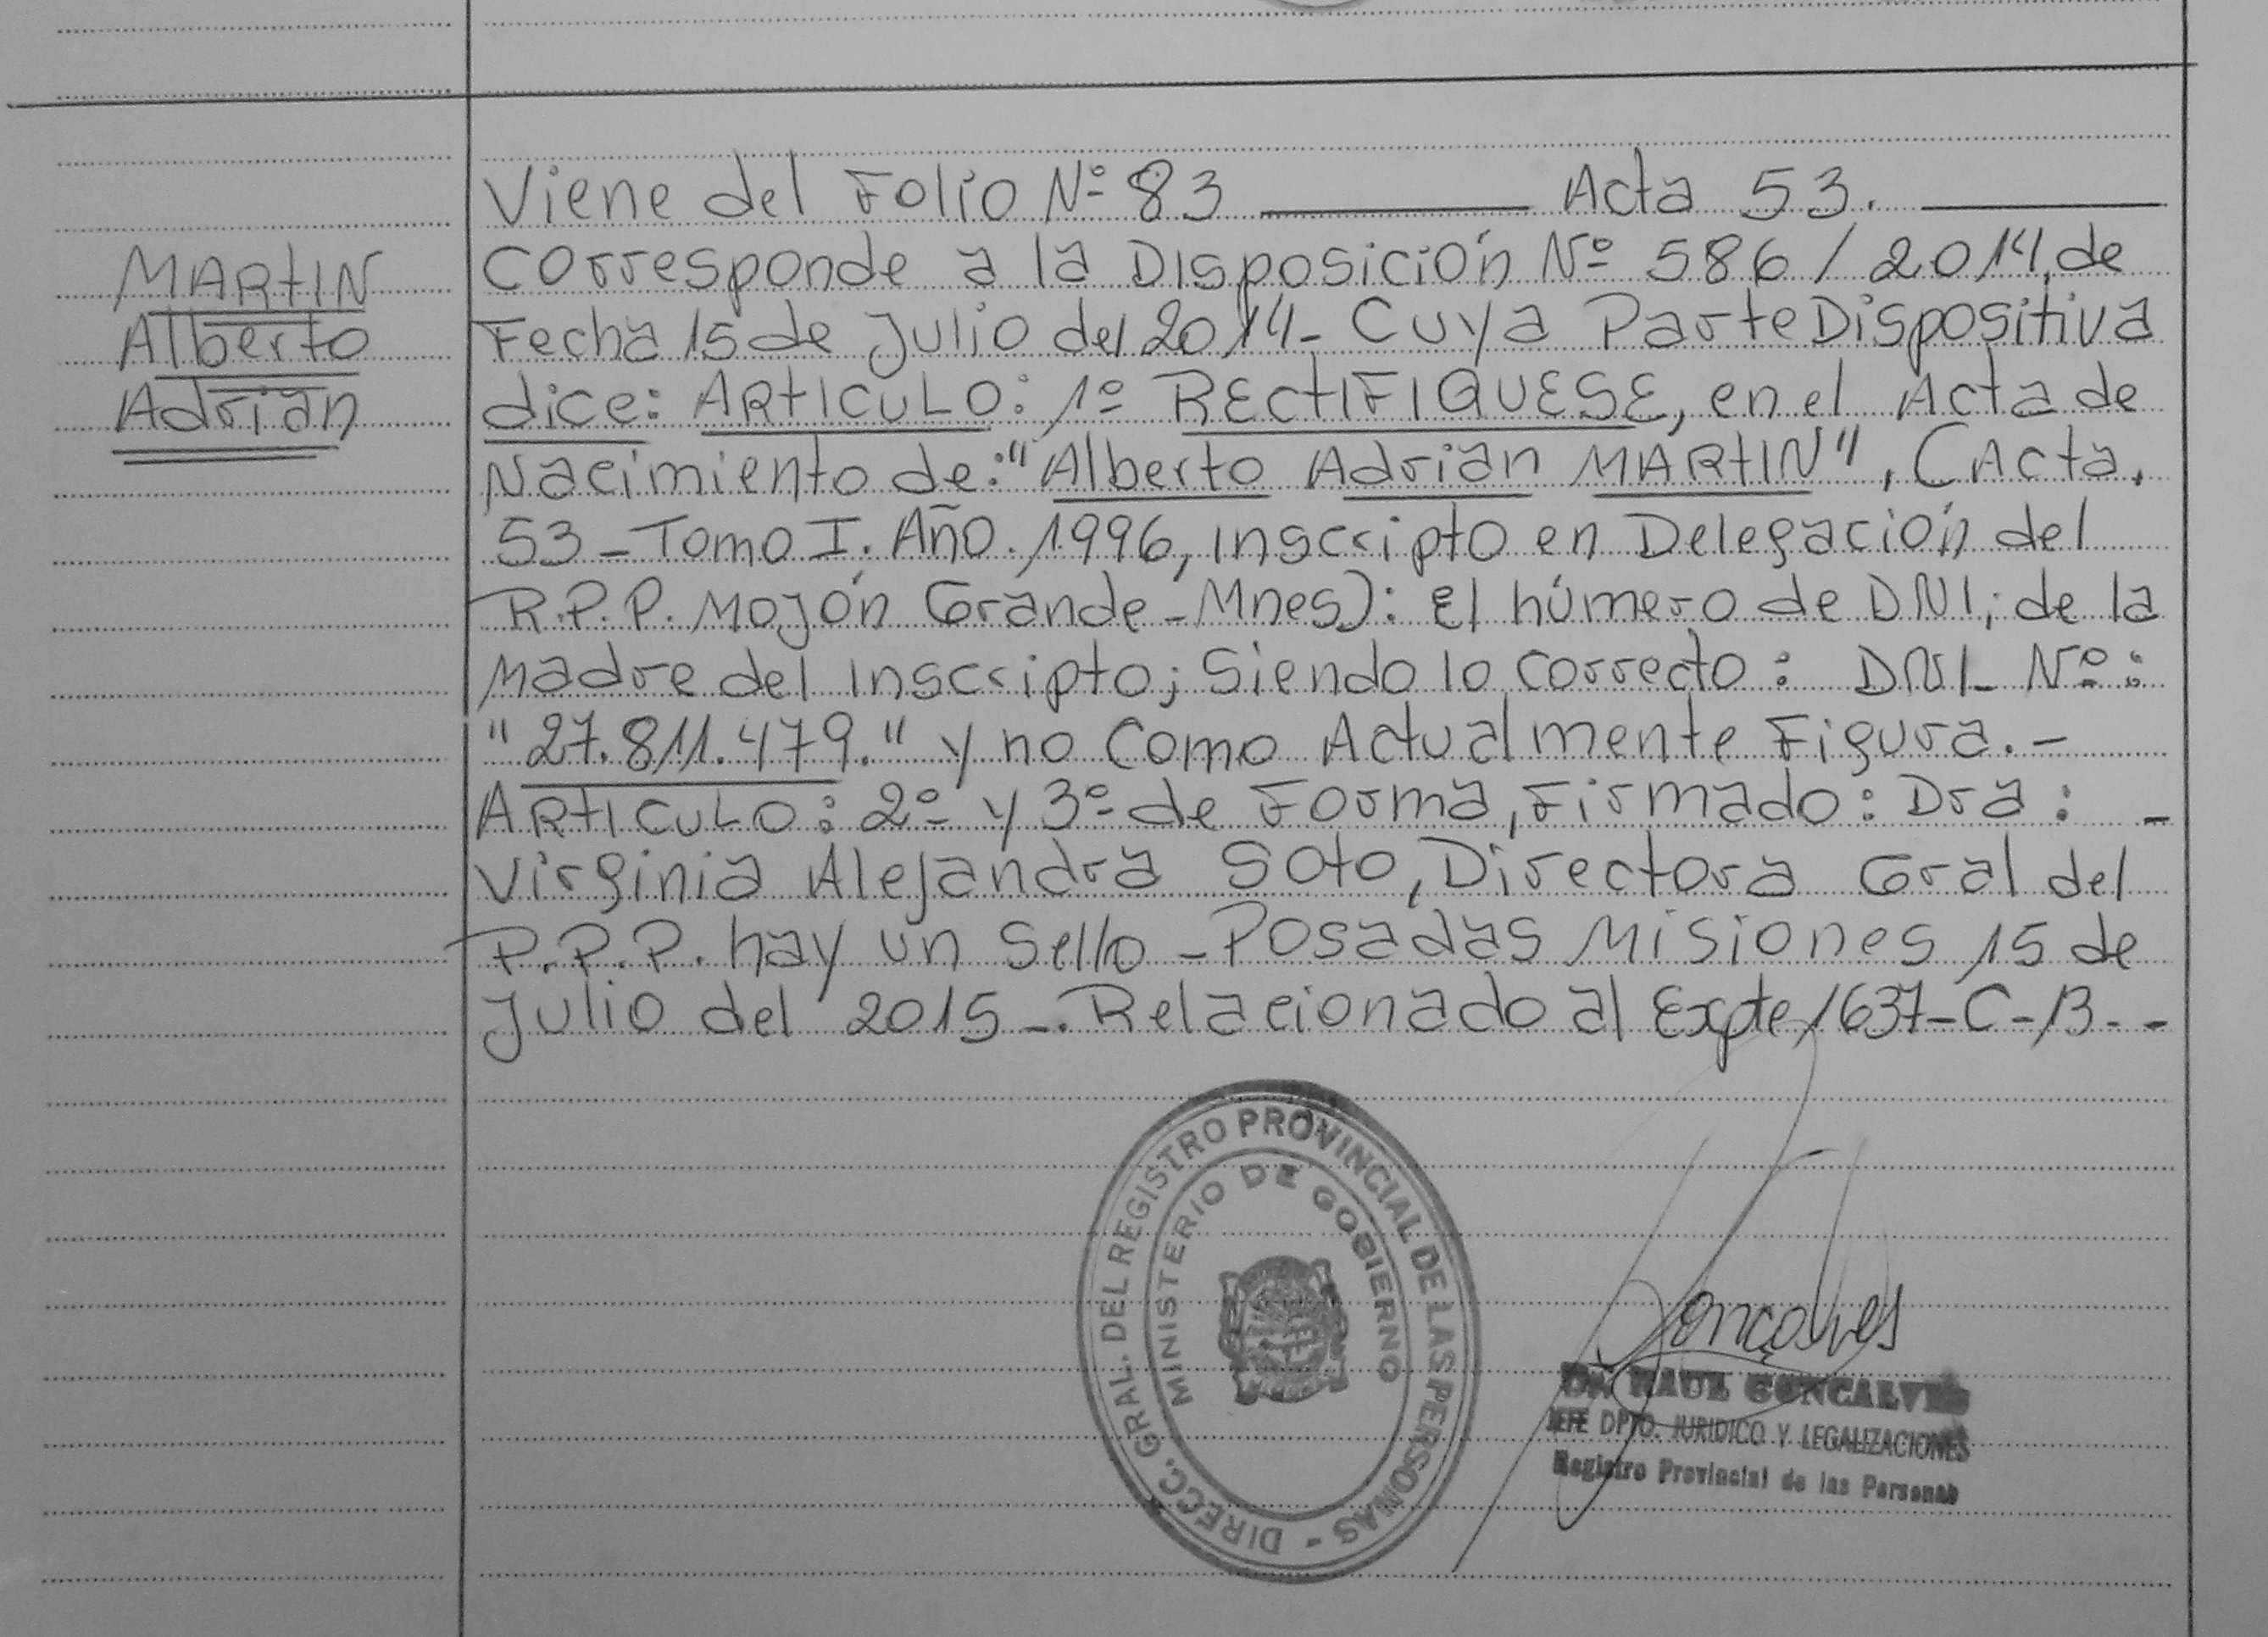 MARTIN
Alberto
Adrian
Viene del Folio Nº 83 ______ Acta 53. ______
Corresponde a la Disposición Nº 586/2014, de
Fecha 15 de Julio del 2014- Cuya Parte Dispositiva
dice: ARTICULO: 1º RECTIFIQUESE, en el Acta de
Nacimiento de: "Alberto Adrian MARTIN", (Acta.
53 - Tomo I. Año. 1996, Inscripto en Delegación del
R.P.P. Mojón Grande - Mnes): El número de DNI; de la
Madre del Inscripto; Siendo lo correcto: DNI- Nº:
"27.811.479." y no Como Actualmente Figura. -
ARTICULO: 2º y 3º de Forma, Firmado: Dra: -
Virginia Alejandra Soto, Directora Gral del
P.P.P. hay un Sello - Posadas Misiones 15 de
Julio del 2015 -. Relacionado al Expte 1637-C-13--
DIRECC. GRAL. DEL REGISTRO PROVINCIAL DE LAS PERSONAS -
MINISTERIO DE GOBIERNO
Goncalves
Dr. RAUL GONCALVES
JEFE DPTO. JURIDICO Y LEGALIZACIONES
Registro Provincial de las Personas